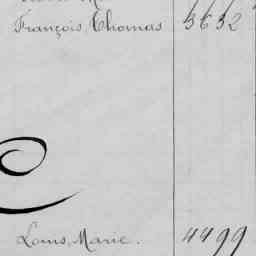 François Thomas 3632
Louis Marie. 4499